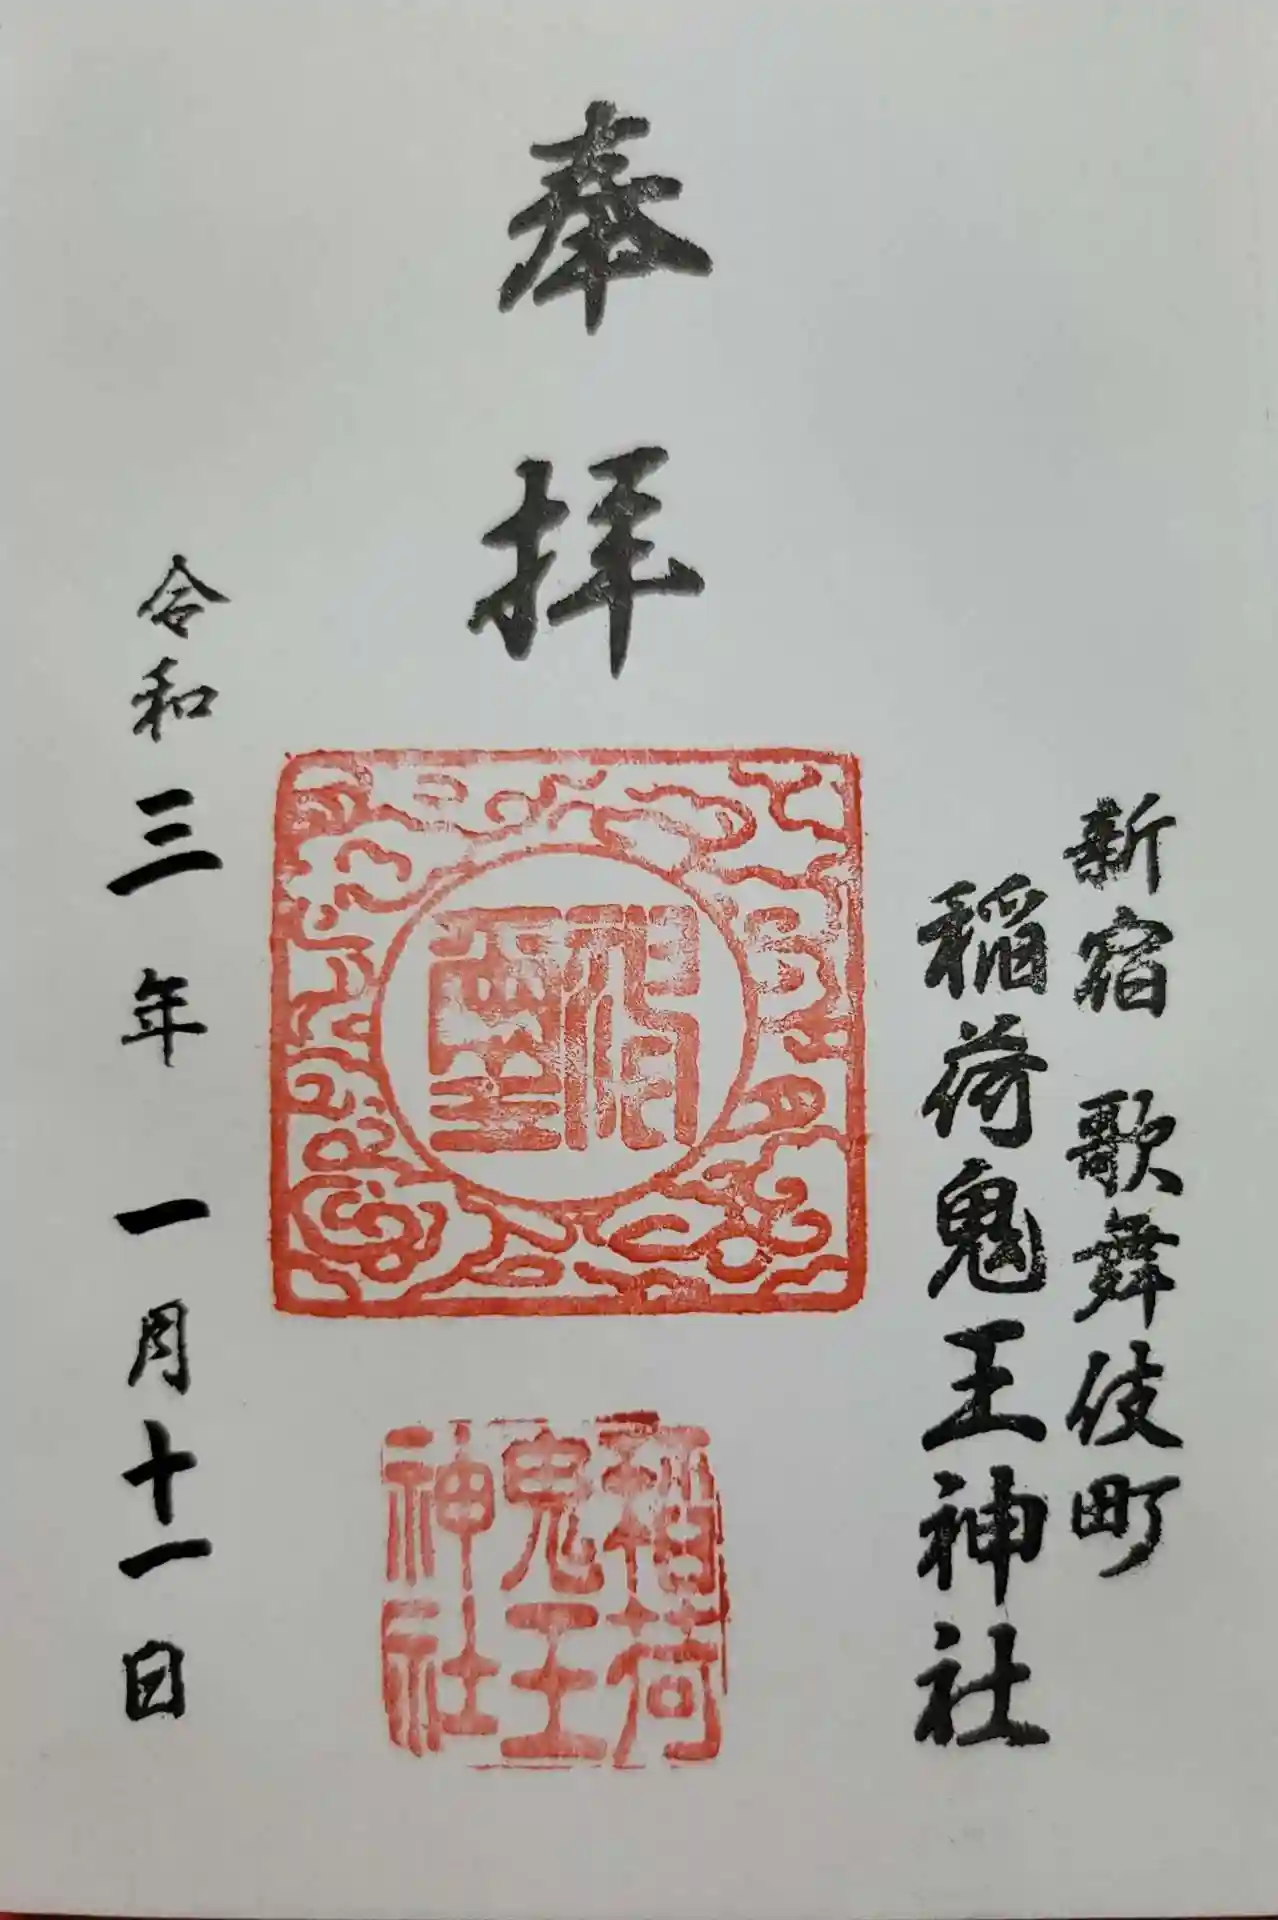 新宿 歌舞伎町
稲荷鬼王神社
奉拝
稲荷
鬼王
神社
令和三年 一月十一日